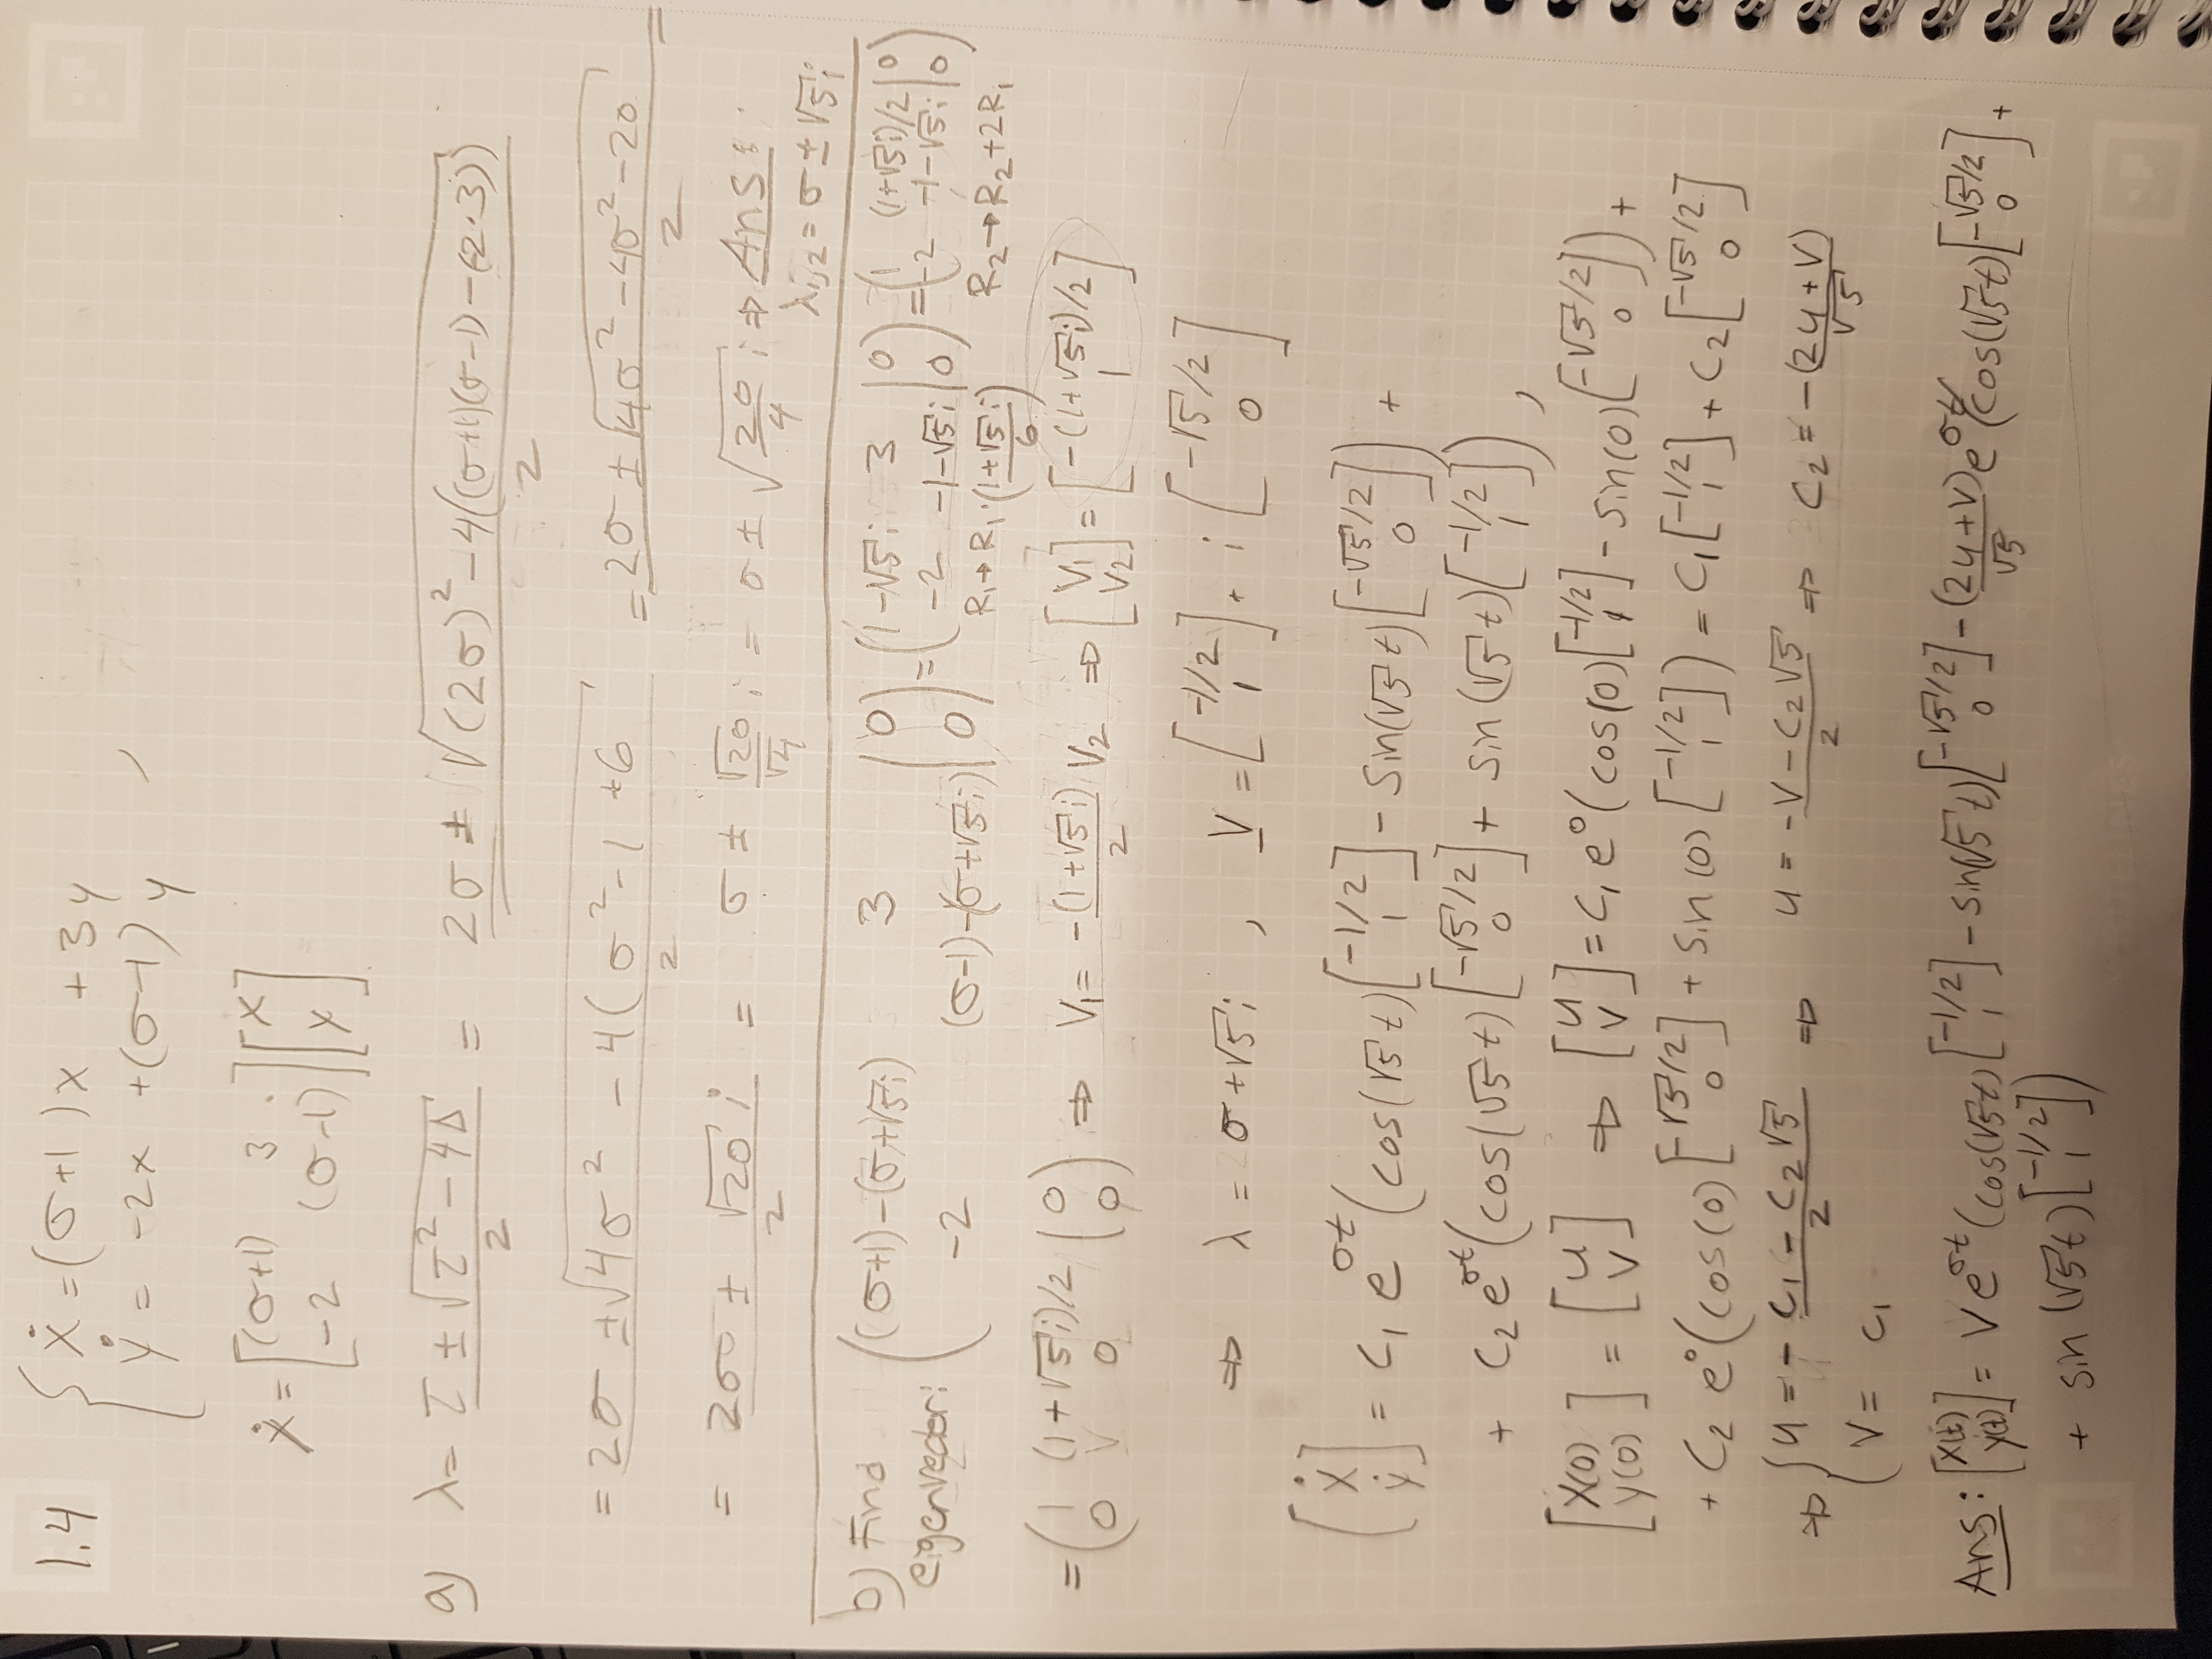 1.4 { ẋ = (σ+1)x + 3y
ẏ = -2x + (σ-1)y ,
ẋ = [(σ+1) 3; -2 (σ-1)] [x; y]
a) λ = (τ ± √(τ² - 4Δ))/2 = (2σ ± √((2σ)² - 4((σ+1)(σ-1) - (-2·3))))/2
= (2σ ± √(4σ² - 4(σ² - 1 + 6))/2 = (2σ ± √(4σ² - 4σ² - 20))/2 =
= (2σ ± √20 i)/2 = σ ± (√20/√4) i = σ ± √(20/4) i ⇒ Ans:
λ1,2 = σ ± √5 i
b) Find eigenvector: ((σ+1)-(σ+√5i) 3 | 0; -2 (σ-1)-(σ+√5i) | 0) = (1-√5i 3 | 0; -2 -1-√5i | 0) = (1 (1+√5i)/2 | 0; -2 -1-√5i | 0)
R1→R1·((1+√5i)/6) R2→R2+2R1
= (1 (1+√5i)/2 | 0; 0 0 | 0) ⇒ V1 = (-(1+√5i)/2) V2 ⇒ [V1; V2] = [-(1+√5i)/2; 1]
⇒ λ = σ+√5i , V = [-1/2; 1] + i [-√5/2; 0]
[ẋ; ẏ] = C1 e^σt (cos(√5t) [-1/2; 1] - sin(√5t) [-√5/2; 0]) +
+ C2 e^σt (cos(√5t) [-√5/2; 0] + sin(√5t) [-1/2; 1]) ,
[X(0); y(0)] = [u; v] ⇒ [u; v] = C1 e^0 (cos(0) [-1/2; 1] - sin(0) [-√5/2; 0]) +
+ C2 e^0 (cos(0) [-√5/2; 0] + sin(0) [-1/2; 1]) = C1 [-1/2; 1] + C2 [-√5/2; 0]
⇒ { u = (-C1 - C2√5)/2 ⇒ u = (-v - C2√5)/2 ⇒ C2 = -(2u+v)/√5
v = C1
Ans: [X(t); y(t)] = v e^σt (cos(√5t) [-1/2; 1] - sin(√5t) [-√5/2; 0] - ((2u+v)/√5) e^σt (cos(√5t) [-√5/2; 0] +
+ sin(√5t) [-1/2; 1])